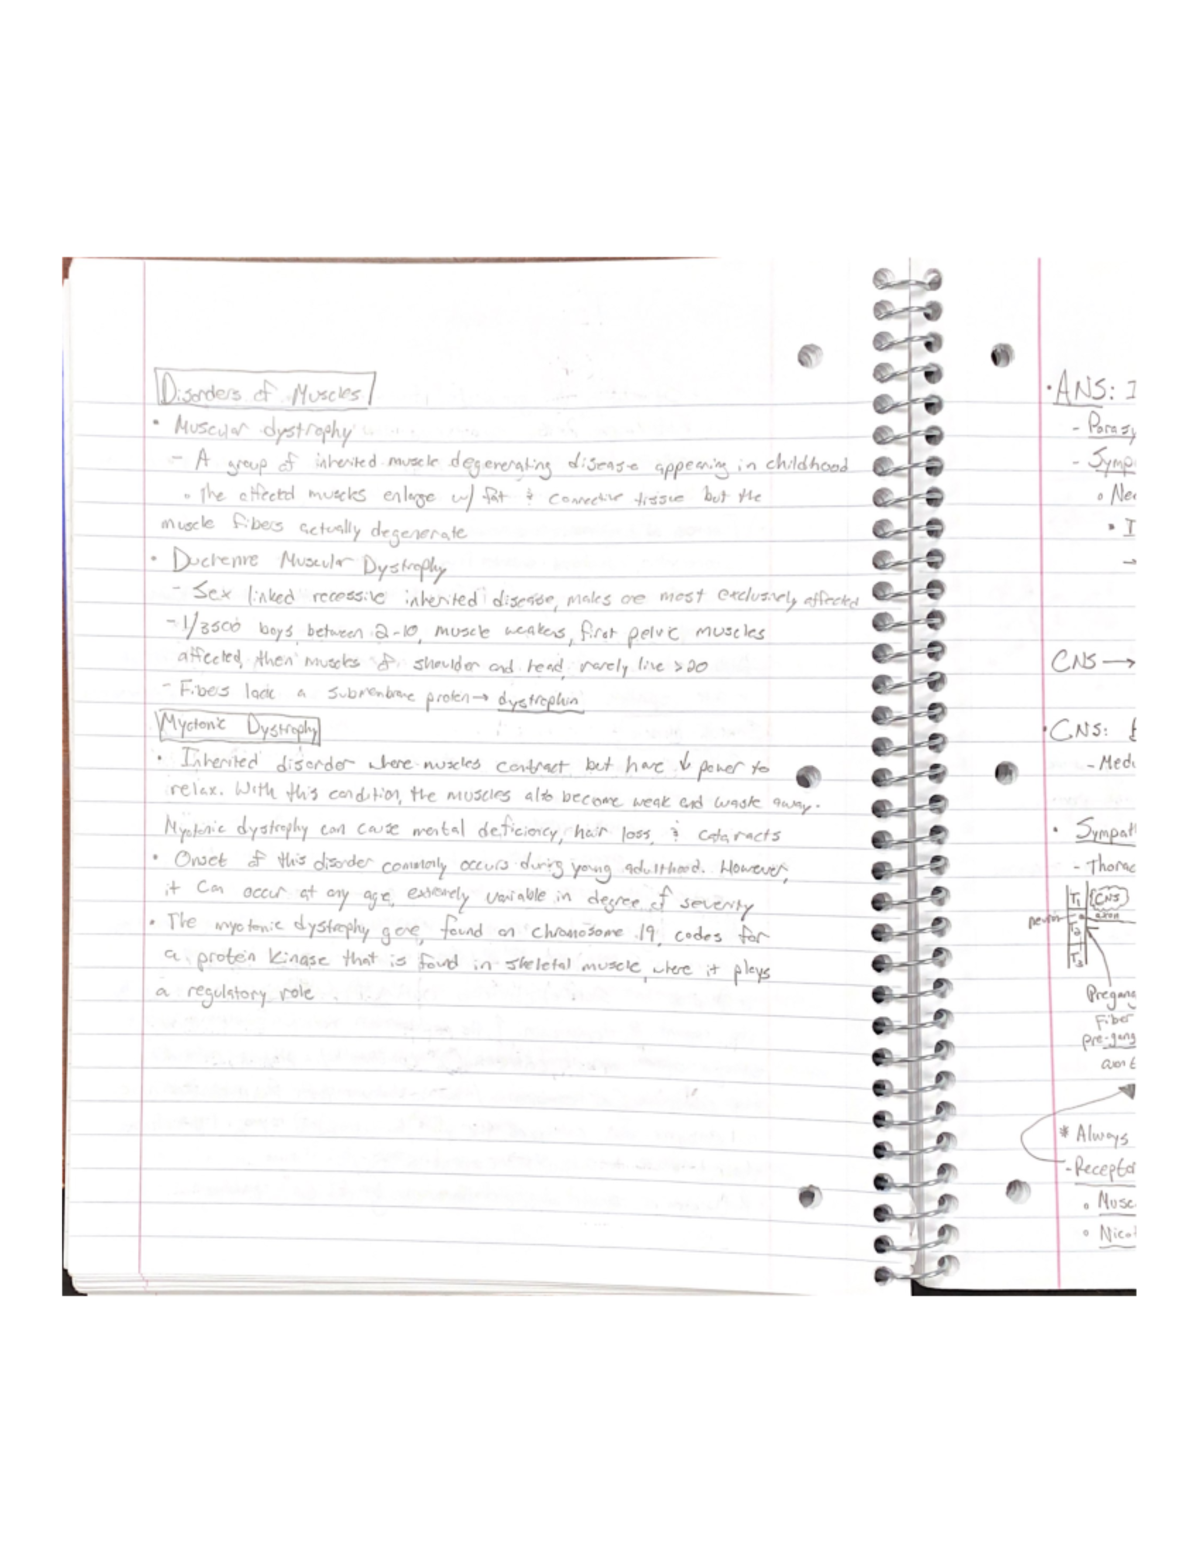 Disorders of Muscles
• Muscular dystrophy
- A group of inherited muscle degenerating disease appearing in childhood
◦ The affected muscles enlarge w/ fat & connective tissue but the
muscle fibers actually degenerate
• Duchenne Muscular Dystrophy
- Sex linked recessive inherited disease, males are most exclusively affected
- 1/3500 boys, between 2-10, muscle weakens, first pelvic muscles
affected, then muscles of shoulder and head, rarely live >20
- Fibers lack a submembrane protein → dystrophin
Myotonic Dystrophy
• Inherited disorder where muscles contract but have ↓ power to
relax. With this condition, the muscles also become weak and waste away.
Myotonic dystrophy can cause mental deficiency, hair loss, & cataracts
• Onset of this disorder commonly occurs during young adulthood. However,
it can occur at any age, extremely variable in degree of severity
• The myotonic dystrophy gene, found on chromosome 19, codes for
a protein kinase that is found in skeletal muscle, where it plays
a regulatory role.
• ANS: I
- Parasy
- Symp
◦ Neu
• I
→
CNS →
• CNS:
- Medu
• Sympath
- Thorac
T1 CNS
neuron axon
T2
T3
Pregang
Fiber
pre-gang
axon
* Always
- Receptor
◦ Musc
◦ Nicot